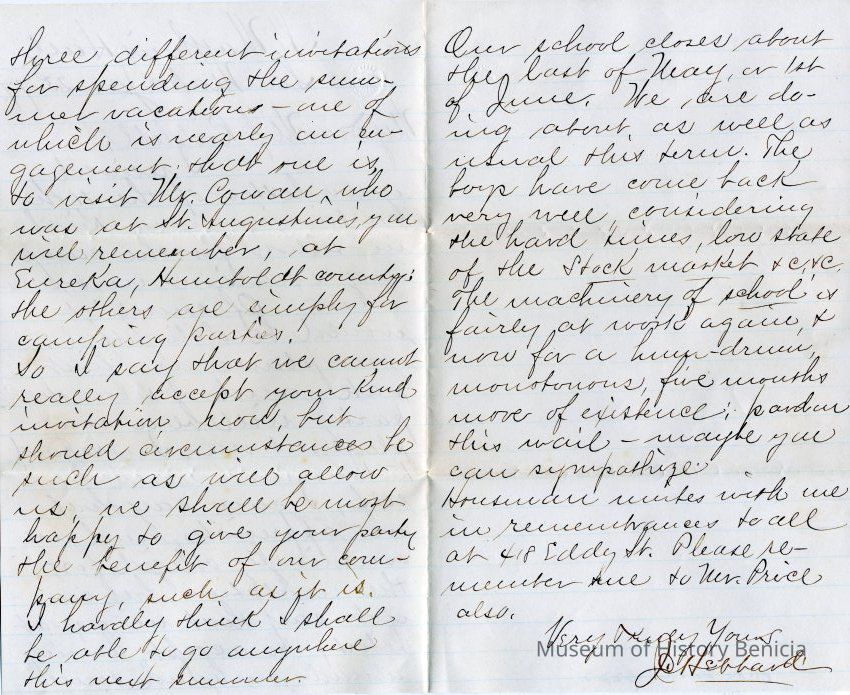 three different invitations
for spending the sum-
mer vacations – one of
which is nearly an en-
gagement; that one is,
to visit Mr. Cowan, who
was at St. Augustine's, you
will remember, at
Eureka, Humboldt county;
the others are simply for
camping parties.
So I say that we cannot
really accept your kind
invitation now, but
should circumstances be
such as will allow
us, we shall be most
happy to give your party
the benefit of our com-
pany, such as it is.
I hardly think I shall
be able to go anywhere
this next summer.
Our school closes about
the last of May, or 1st
of June. We are do-
ing about as well as
usual this term. The
boys have come back
very well, considering
the hard times, low state
of the stock market &c, &c.
The machinery of school is
fairly at work again, &
now for a hum-drum,
monotonous, five months
more of existence; pardon
this wail – maybe you
can sympathize.
Housman unites with me
in remembrances to all
at 418 Eddy St. Please re-
member me to Mr. Price
also.
Very Truly Yours
Hebbard
Museum of History Benicia